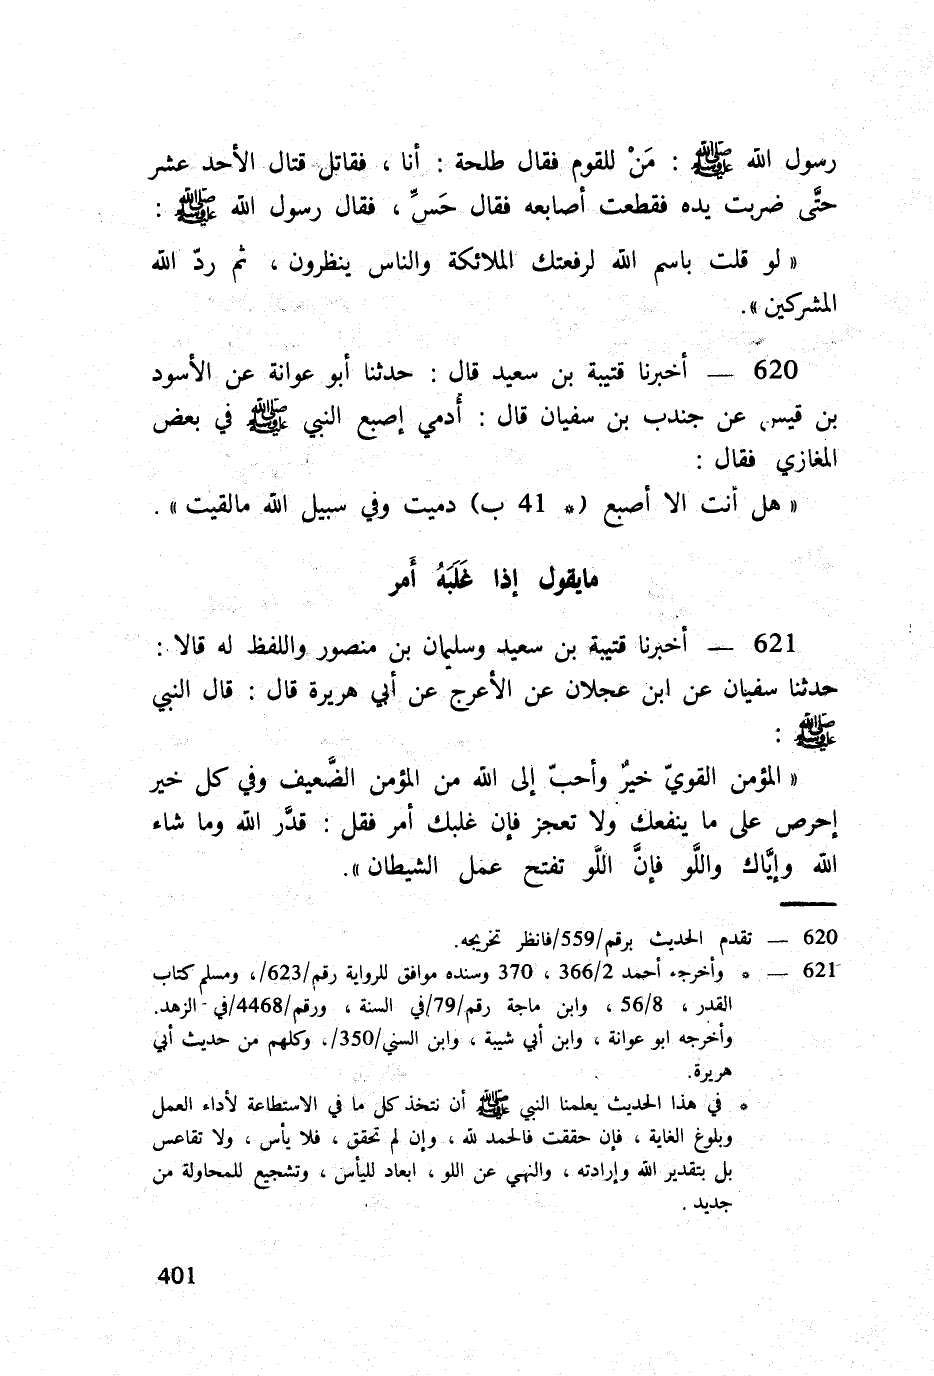 رسول الله ﷺ : مَنْ للقوم فقال طلحة : أنا ، فقاتل قتال الأحد عشر
حتَّى ضربت يده فقطعت أصابعه فقال حَسِّ ، فقال رسول الله ﷺ :
« لو قلت باسم الله لرفعتك الملائكة والناس ينظرون ، ثم ردّ الله
المشركين ».
620 — أخبرنا قتيبة بن سعيد قال : حدثنا أبو عوانة عن الأسود
بن قيس عن جندب بن سفيان قال : أُدمي إصبع النبي ﷺ في بعض
المغازي فقال :
« هل أنت الا أصبع (* 41 ب) دميت وفي سبيل الله مالقيت » .
مايقول إذا غَلَبَهُ أَمر
621 — أخبرنا قتيبة بن سعيد وسليمان بن منصور واللفظ له قالا :
حدثنا سفيان عن ابن عجلان عن الأعرج عن أبي هريرة قال : قال النبي
ﷺ :
« المؤمن القويّ خيرٌ وأحبّ إلى الله من المؤمن الضَّعيف وفي كل خير
إحرص على ما ينفعك ولا تعجز فإن غلبك أمر فقل : قدَّر الله وما شاء
الله وإيَّاك واللَّو فإنَّ اللَّو تفتح عمل الشيطان ».
620 — تقدم الحديث برقم/559/فانظر تخريجه.
621 — * وأخرجه أحمد 366/2 ، 370 وسنده موافق للرواية رقم/623/، ومسلم كتاب
القدر ، 56/8 ، وابن ماجة رقم/79/في السنة ، ورقم/4468/في الزهد.
وأخرجه ابو عوانة ، وابن أبي شيبة ، وابن السني/350/، وكلهم من حديث أبي
هريرة.
* في هذا الحديث يعلمنا النبي ﷺ أن نتخذ كل ما في الاستطاعة لأداء العمل
وبلوغ الغاية ، فإن حققت فالحمد لله ، وإن لم تحقق ، فلا يأس ، ولا تقاعس
بل بتقدير الله وإرادته ، والنهي عن اللو ، ابعاد لليأس ، وتشجيع للمحاولة من
جديد .
401